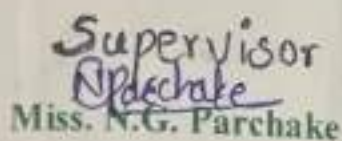 Supervisor
NParchake
Miss. N.G. Parchake